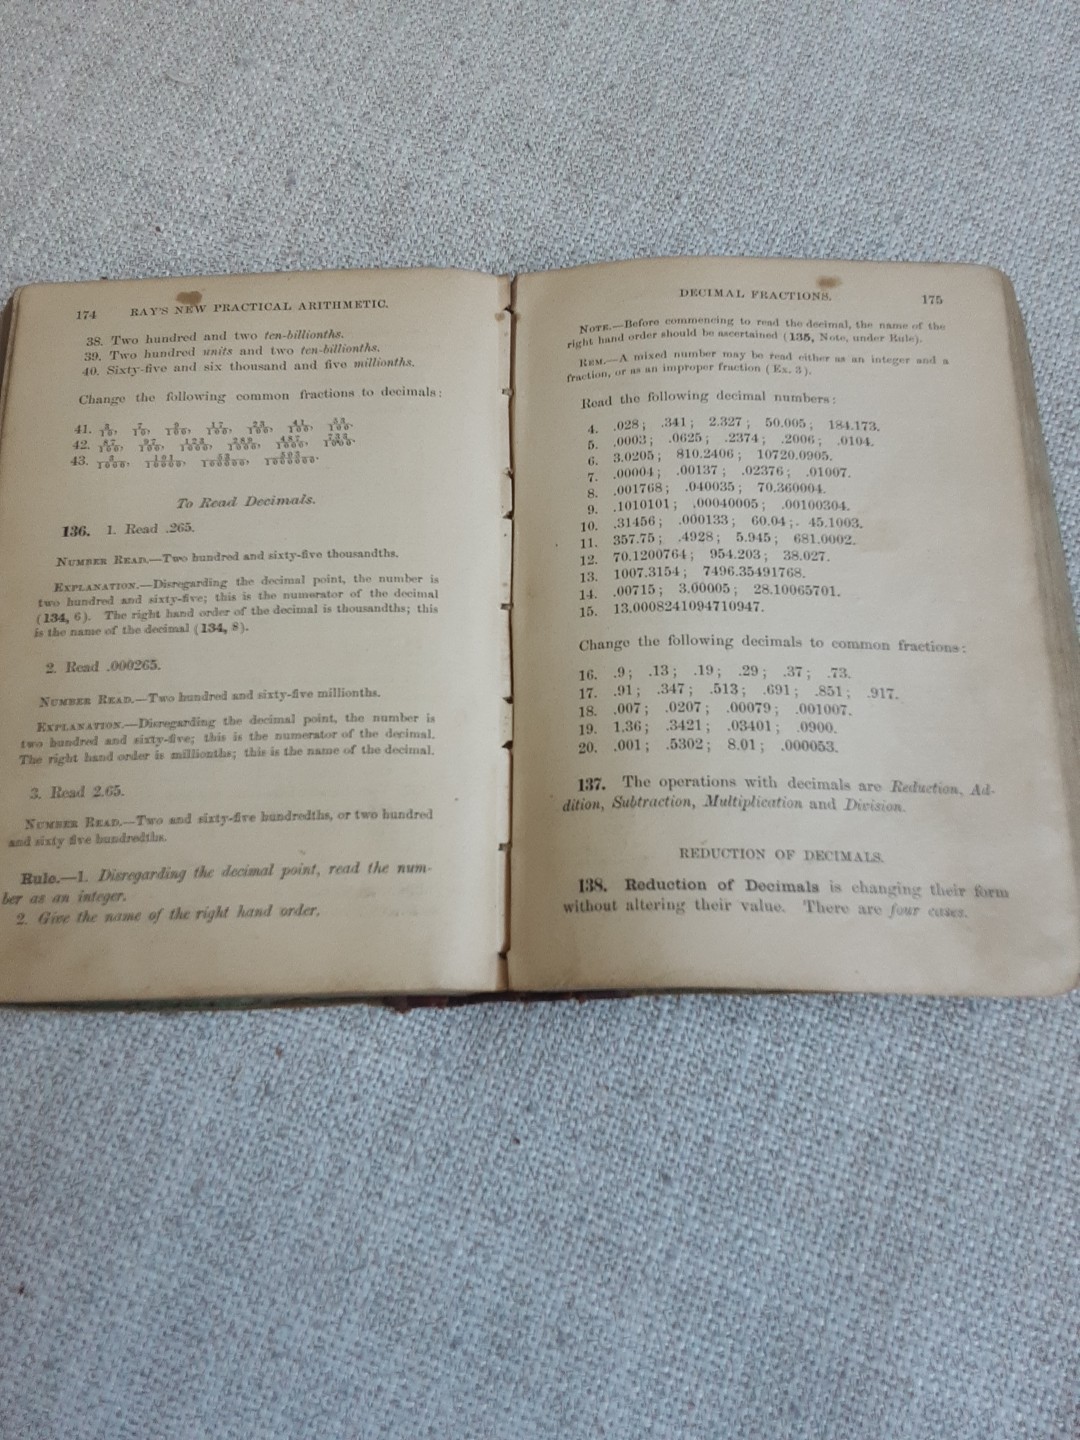 174 RAY'S NEW PRACTICAL ARITHMETIC.
38. Two hundred and two ten-billionths.
39. Two hundred units and two ten-billionths.
40. Sixty-five and six thousand and five millionths.
Change the following common fractions to decimals:
41.
42.
43.
To Read Decimals.
136. 1. Read .265.
NUMBER READ.—Two hundred and sixty-five thousandths.
EXPLANATION.—Disregarding the decimal point, the number is
two hundred and sixty-five; this is the numerator of the decimal
(134, 6). The right hand order of the decimal is thousandths; this
is the name of the decimal (134, 8).
2. Read .000265.
NUMBER READ.—Two hundred and sixty-five millionths.
EXPLANATION.—Disregarding the decimal point, the number is
two hundred and sixty-five; this is the numerator of the decimal.
The right hand order is millionths; this is the name of the decimal.
3. Read 2.65.
NUMBER READ.—Two and sixty-five hundredths, or two hundred
and sixty five hundredths.
Rule.—1. Disregarding the decimal point, read the num-
ber as an integer.
2. Give the name of the right hand order.
DECIMAL FRACTIONS. 175
NOTE.—Before commencing to read the decimal, the name of the
right hand order should be ascertained (135, Note, under Rule).
REM.—A mixed number may be read either as an integer and a
fraction, or as an improper fraction (Ex. 3).
Read the following decimal numbers:
4. .028; .341; 2.327; 50.005; 184.173.
5. .0003; .0625; .2374; .2006; .0104.
6. 3.0205; 810.2406; 10720.0905.
7. .00004; .00137; .02376; .01007.
8. .001768; .040035; 70.360004.
9. .1010101; .00040005; .00100304.
10. .31456; .000133; 60.04; 45.1003.
11. 357.75; .4928; 5.945; 681.0002.
12. 70.1200764; 954.203; 38.027.
13. 1007.3154; 7496.35491768.
14. .00715; 3.00005; 28.10065701.
15. 13.0008241094710947.
Change the following decimals to common fractions:
16. .9; .13; .19; .29; .37; .73.
17. .91; .347; .513; .691; .851; .917.
18. .007; .0207; .00079; .001007.
19. 1.36; .3421; .03401; .0900.
20. .001; .5302; 8.01; .000053.
137. The operations with decimals are Reduction, Ad-
dition, Subtraction, Multiplication and Division.
REDUCTION OF DECIMALS.
138. Reduction of Decimals is changing their form
without altering their value. There are four cases.